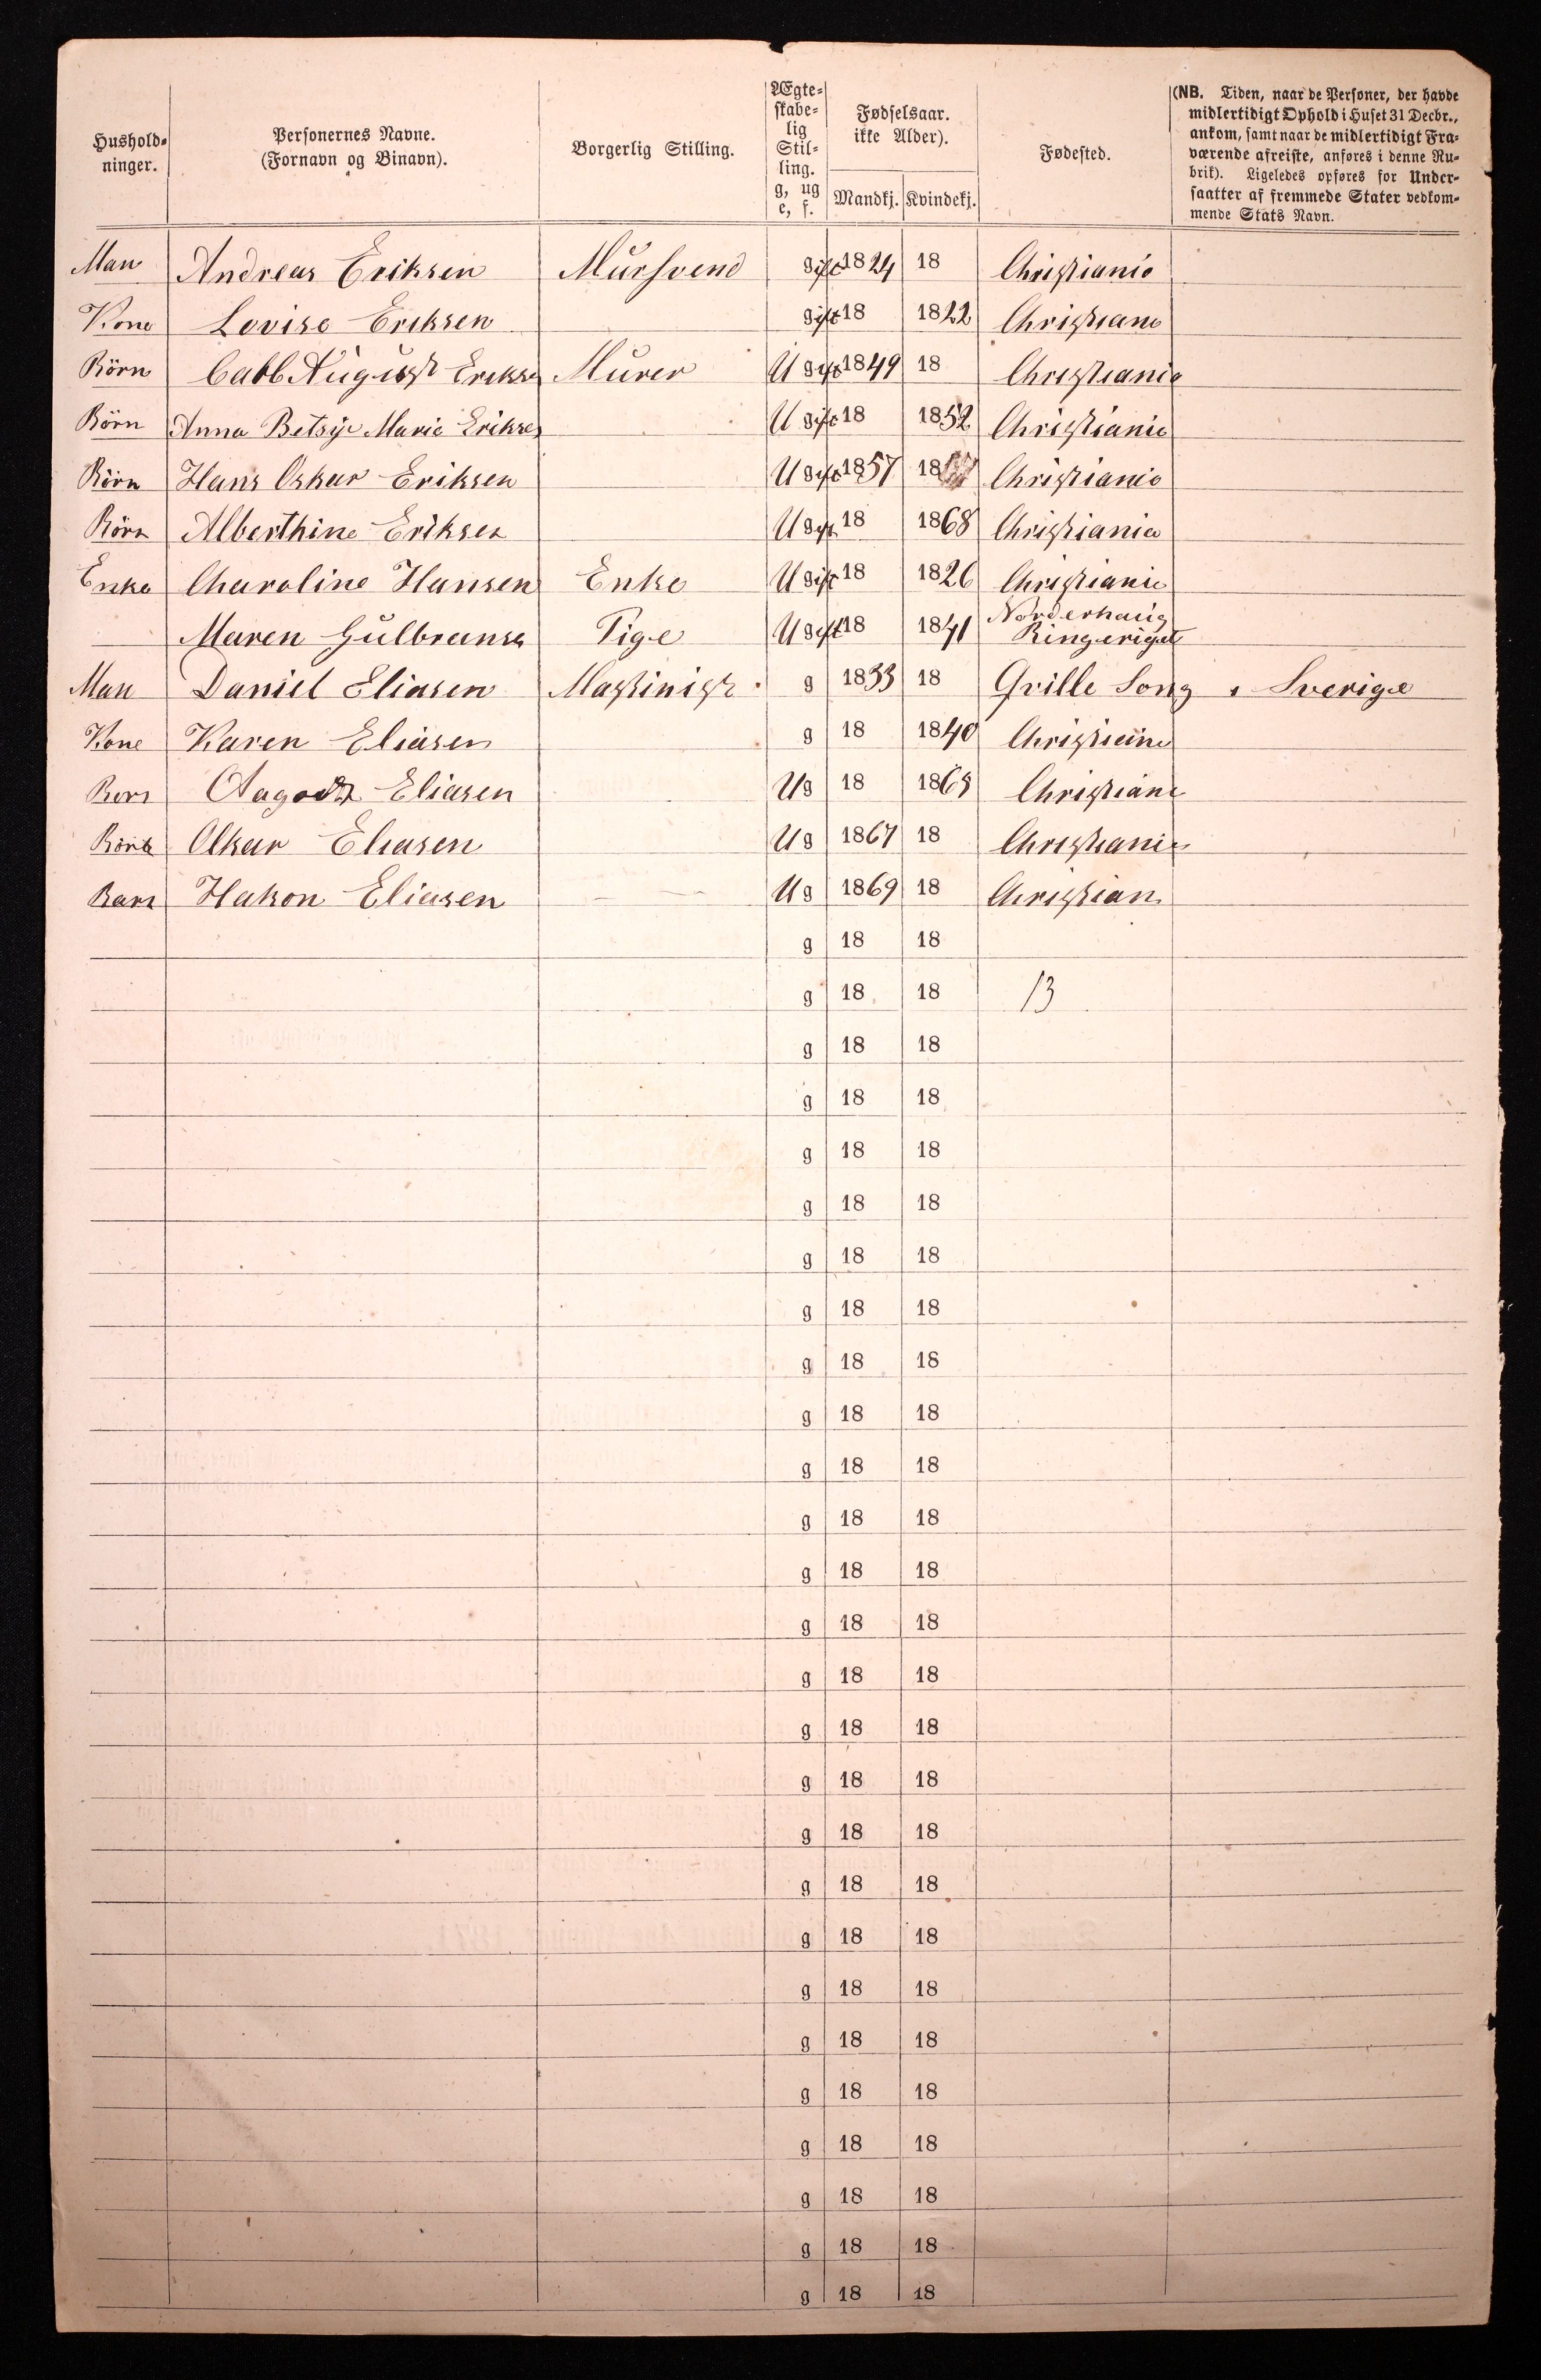 Hushold-
ninger.
Personernes Navne.
(Fornavn og Binavn).
Borgerlig Stilling.
Ægte-
skabe-
lig
Stil-
ling.
g, ug
e, f.
Fødselsaar.
ikke Alder).
Mandkj. Kvindekj.
Fødested.
(NB. Tiden, naar de Personer, der havde
midlertidigt Ophold i Huset 31 Decbr.,
ankom, samt naar de midlertidigt Fra-
værende afreiste, anføres i denne Ru-
brik). Ligeledes opføres for Under-
saatter af fremmede Stater vedkom-
mende Stats Navn.
Man Andreas Eriksen Mursvend gift 1824 18 Christiania
Kone Lovise Eriksen gift 18 1822 Christiania
Börn Carl August Eriksen Murer Ugift 1849 18 Christiania
Börn Anna Betsye Marie Eriksen Ugift 18 1852 Christiania
Börn Hans Oskar Eriksen Ugift 1857 18 Christiania
Börn Alberthine Eriksen Ugift 18 1868 Christiania
Enke Charoline Hansen Enke Ugift 18 1826 Christiania
Maren Gulbransen Pige Ugift 18 1841 Norderhaug
Ringeriget
Man Daniel Eliasen Maskinist g 1833 18 Grille Song i Sverige
Kone Karen Eliasen g 18 1840 Christiania
Born Eliasen Ug 18 1865 Christiania
Börn Oskar Eliasen Ug 1867 18 Christiania
Barn Hakon Eliasen Ug 1869 18 Christian
g 18 18
g 18 18 13
g 18 18
g 18 18
g 18 18
g 18 18
g 18 18
g 18 18
g 18 18
g 18 18
g 18 18
g 18 18
g 18 18
g 18 18
g 18 18
g 18 18
g 18 18
g 18 18
g 18 18
g 18 18
g 18 18
g 18 18
g 18 18
g 18 18
g 18 18
g 18 18
g 18 18